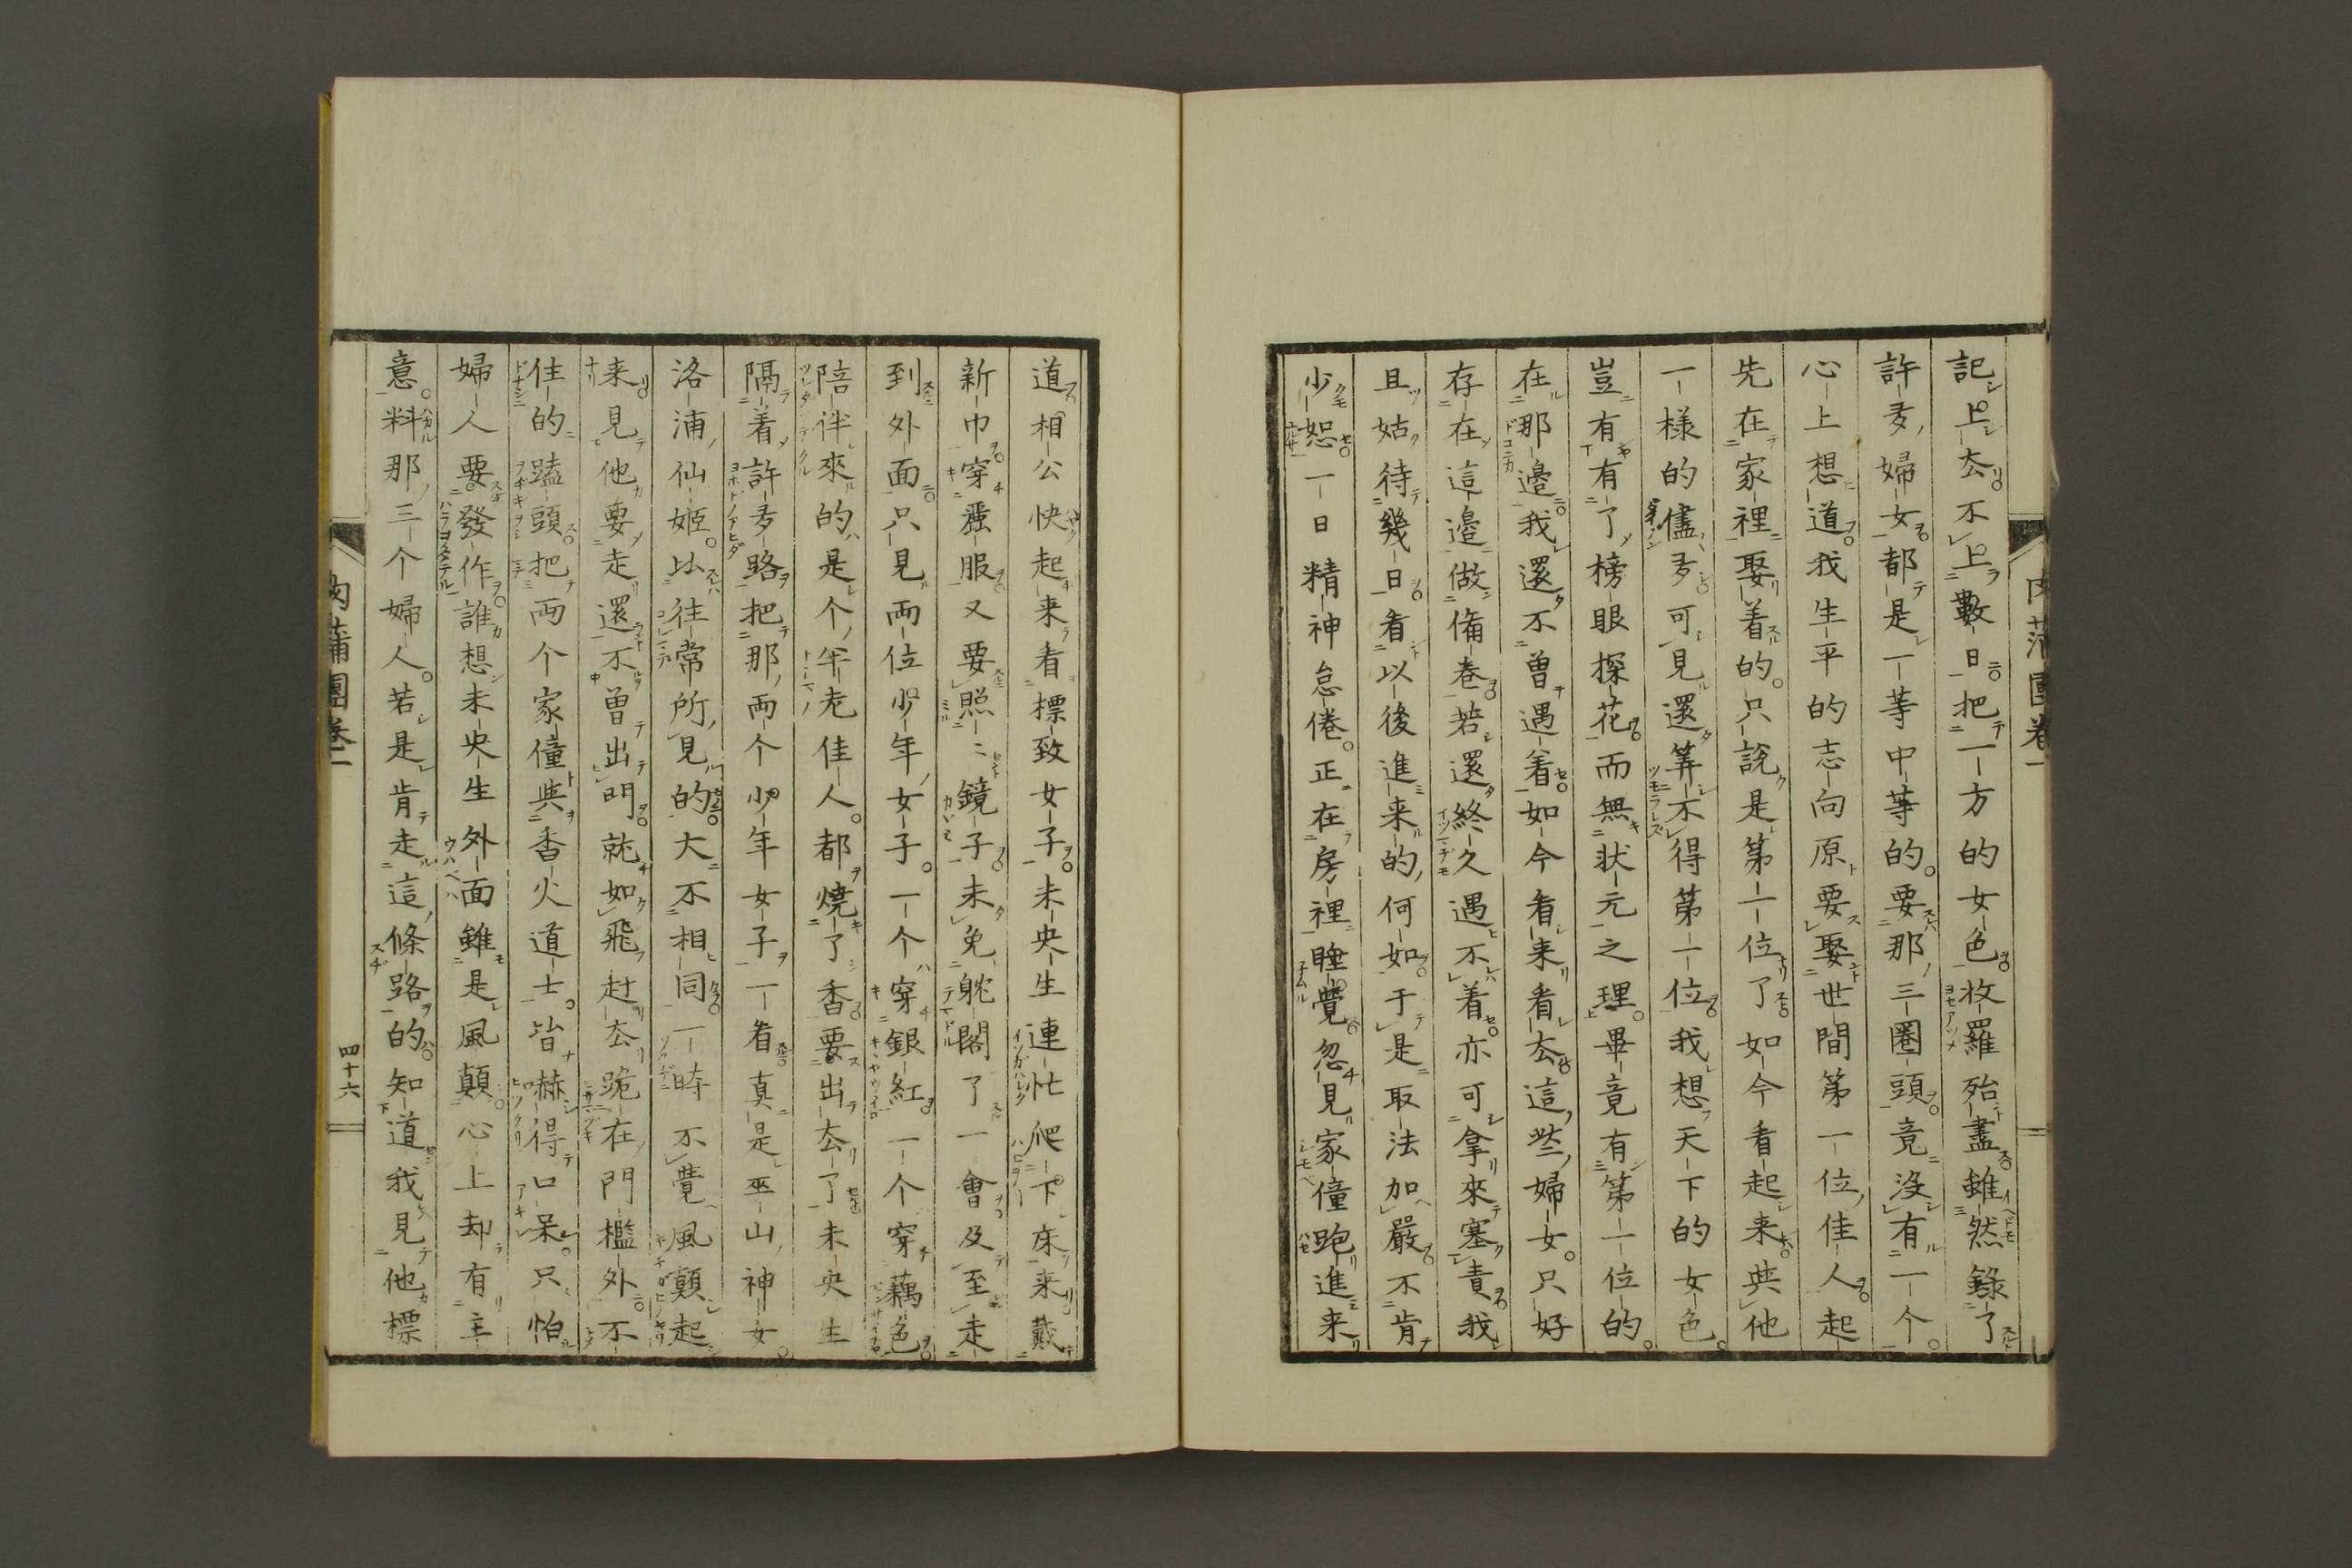 肉蒲團卷一
記上厺不上數日把一方的女色收羅殆盡雖然錄了
許多婦女都是一等中等的要那三圈頭竟沒有一个
心上想道我生平的志向原要娶世間第一位佳人起
先在家裡娶着的只說是第一位了如今看起来與他
一樣的儘多可見還筭不得第一位我想天下的女色
豈有有了榜眼探花而無狀元之理畢竟有第一位的
在那邉我還不曾遇着如今看来看厺這些婦女只好
存在這邉做備卷若還終久遇不着亦可拿來塞責我
且姑待幾日看以後進来的何如于是取法加嚴不肯
少恕一日精神怠倦正在房裡睡覺忽見家僮跑進来
道相公快起来看標致女子未央生連忙爬下床来戴
新巾穿麗服又要照〻鏡子未免躭閣了一會及至走
到外面只見両位少年女子一个穿銀紅一个穿藕色
陪伴來的是个半老佳人都燒了香要出厺了未央生
隔着許多路把那両个少年女子一看真是巫山神女
洛浦仙姬比往常所見的大不相同一時不覺風顛起
来見他要走還不曽出門就如飛赶厺跪在門檻外不
住的磕頭把両个家僮與香火道士皆嚇得口呆只怕
婦人要發作誰想未央生外面雖是風顛心上却有主
意料那三个婦人若是肯走這條路的知道我見他標
肉蒲團卷一
四十六